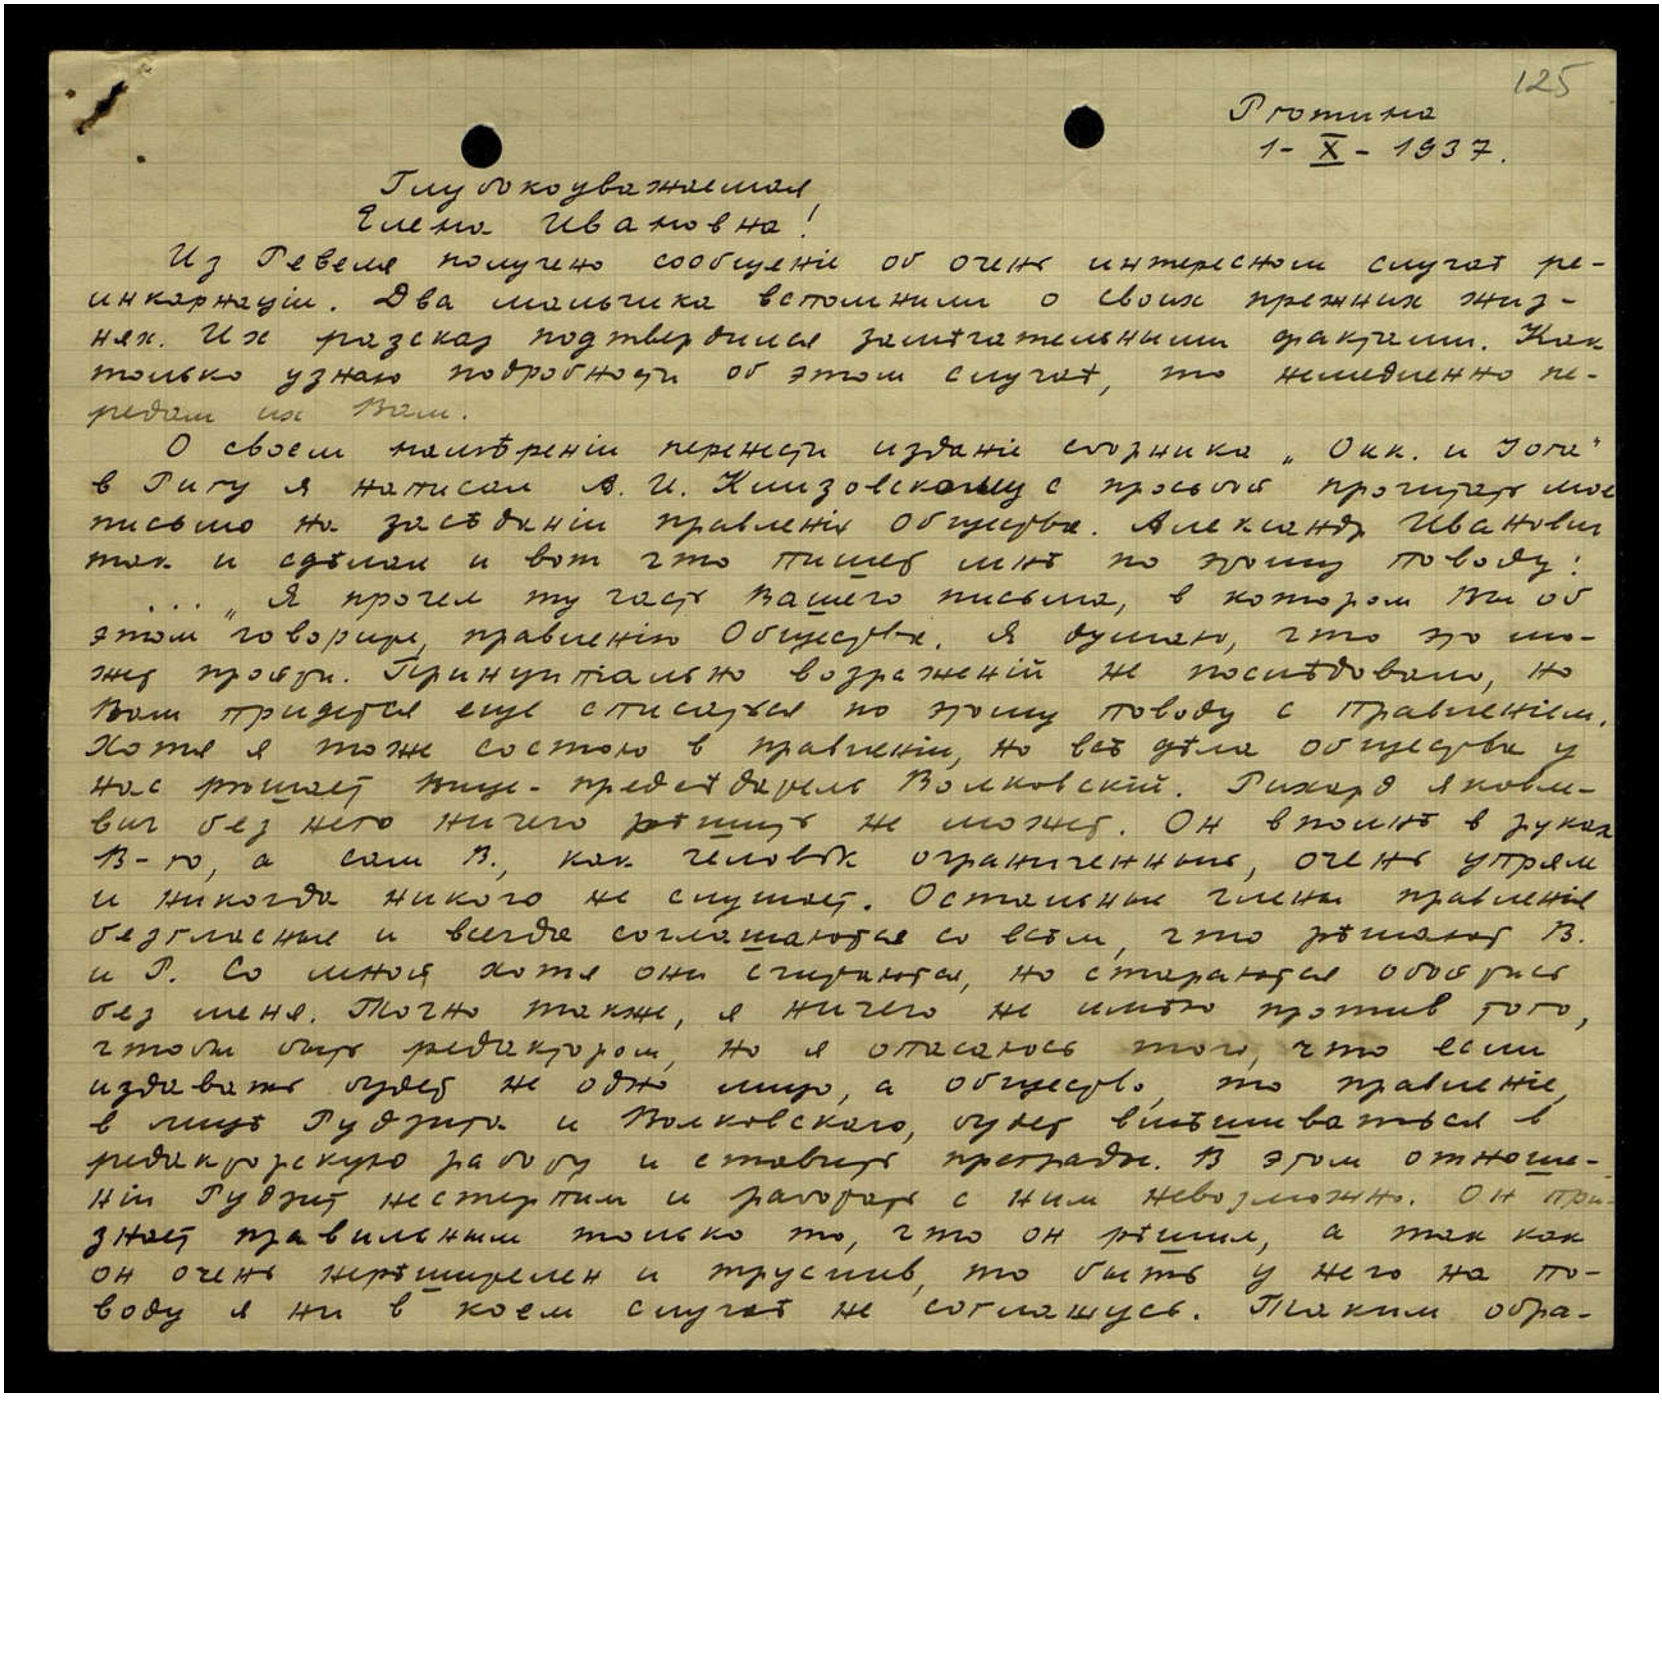 125
Рготина
1 - X - 1937.
Глубокоуважаемая
Елена Ивановна!
Из Ревеля получено сообщеніе об очень интересном случаѣ ре-
инкарнаціи. Два мальчика вспомнили о своих прежних жиз-
нях. Их разсказ подтвердился замѣчательными фактами. Как
только узнаю подробности об этом случаѣ, то немедленно пе-
редам их Вам.
О своем намѣреніи перенести изданіе сборника „Окк. и Iога"
в Ригу я написал А. И. Клизовскому с просьбой прочитать мое
письмо на засѣданіи правленія Общества. Александр Иванович
так и сдѣлал и вот что пишет мнѣ по этому поводу:
... „Я прочел ту часть Вашего письма, в котором Вы об
этом говорите, правленію Общества. Я думаю, что это мо-
жет пройти. Принципіально возраженій не послѣдовало, но
Вам придется еще списаться по этому поводу с Правленіем.
Хотя я тоже состою в правленіи, но всѣ дѣла общества у
нас рѣшает вице-предсѣдатель Волковскій. Рихард Яковле-
вич без него ничего рѣшить не может. Он вполнѣ в руках
В-го, а сам В., как человѣк ограниченный, очень упрям
и никогда никого не слушает. Остальные члены правленія
безгласные и всегда соглашаются со всѣм, что рѣшают В.
и Р. Со мной хотя они считаются, но стараются обойтись
без меня. Точно также, я ничего не имѣю против того,
чтобы быть редактором, но я опасаюсь того, что если
издавать будет не одно лицо, а общество, то правленіе,
в лицѣ Рудзита и Волковскаго, будет вмѣшиваться в
редакторскую работу и ставить преграды. В этом отноше-
ніи Рудзит нестерпим и работать с ним невозможно. Он при-
знает правильным только то, что он рѣшил, а так как
он очень нерѣшителен и труслив, то быть у него на по-
воду я ни в коем случаѣ не соглашусь. Таким обра-